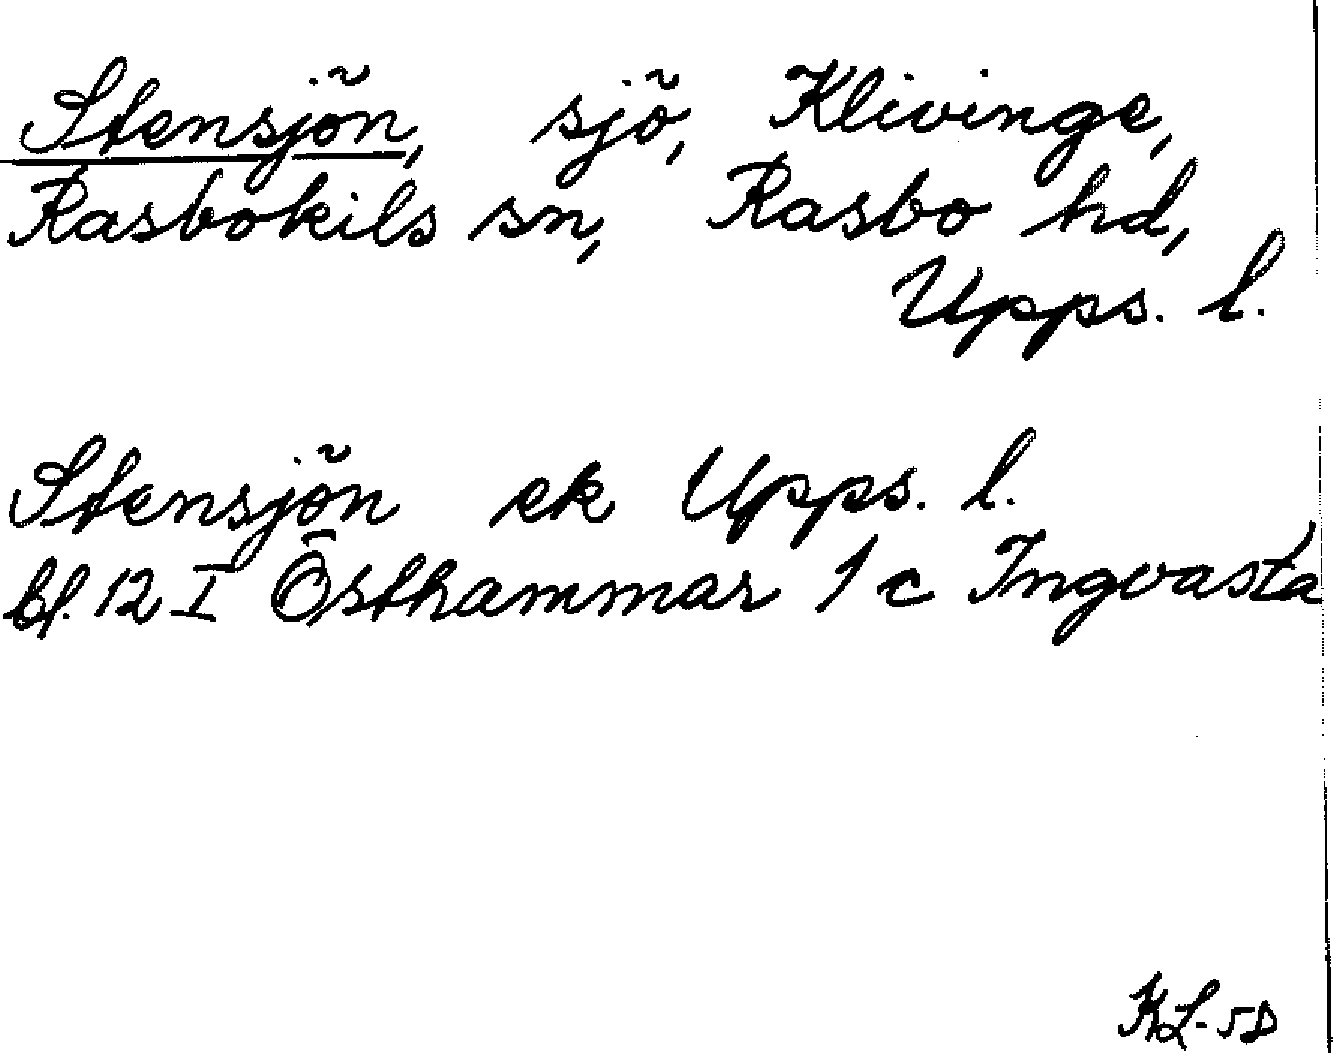 Stensjön, sjö, Klivinge,
Rasbokils sn, Rasbo hd,
Upps. l.
Stensjön ek Upps. l.
bl. 12 I Östhammar 1 c Ingvasta